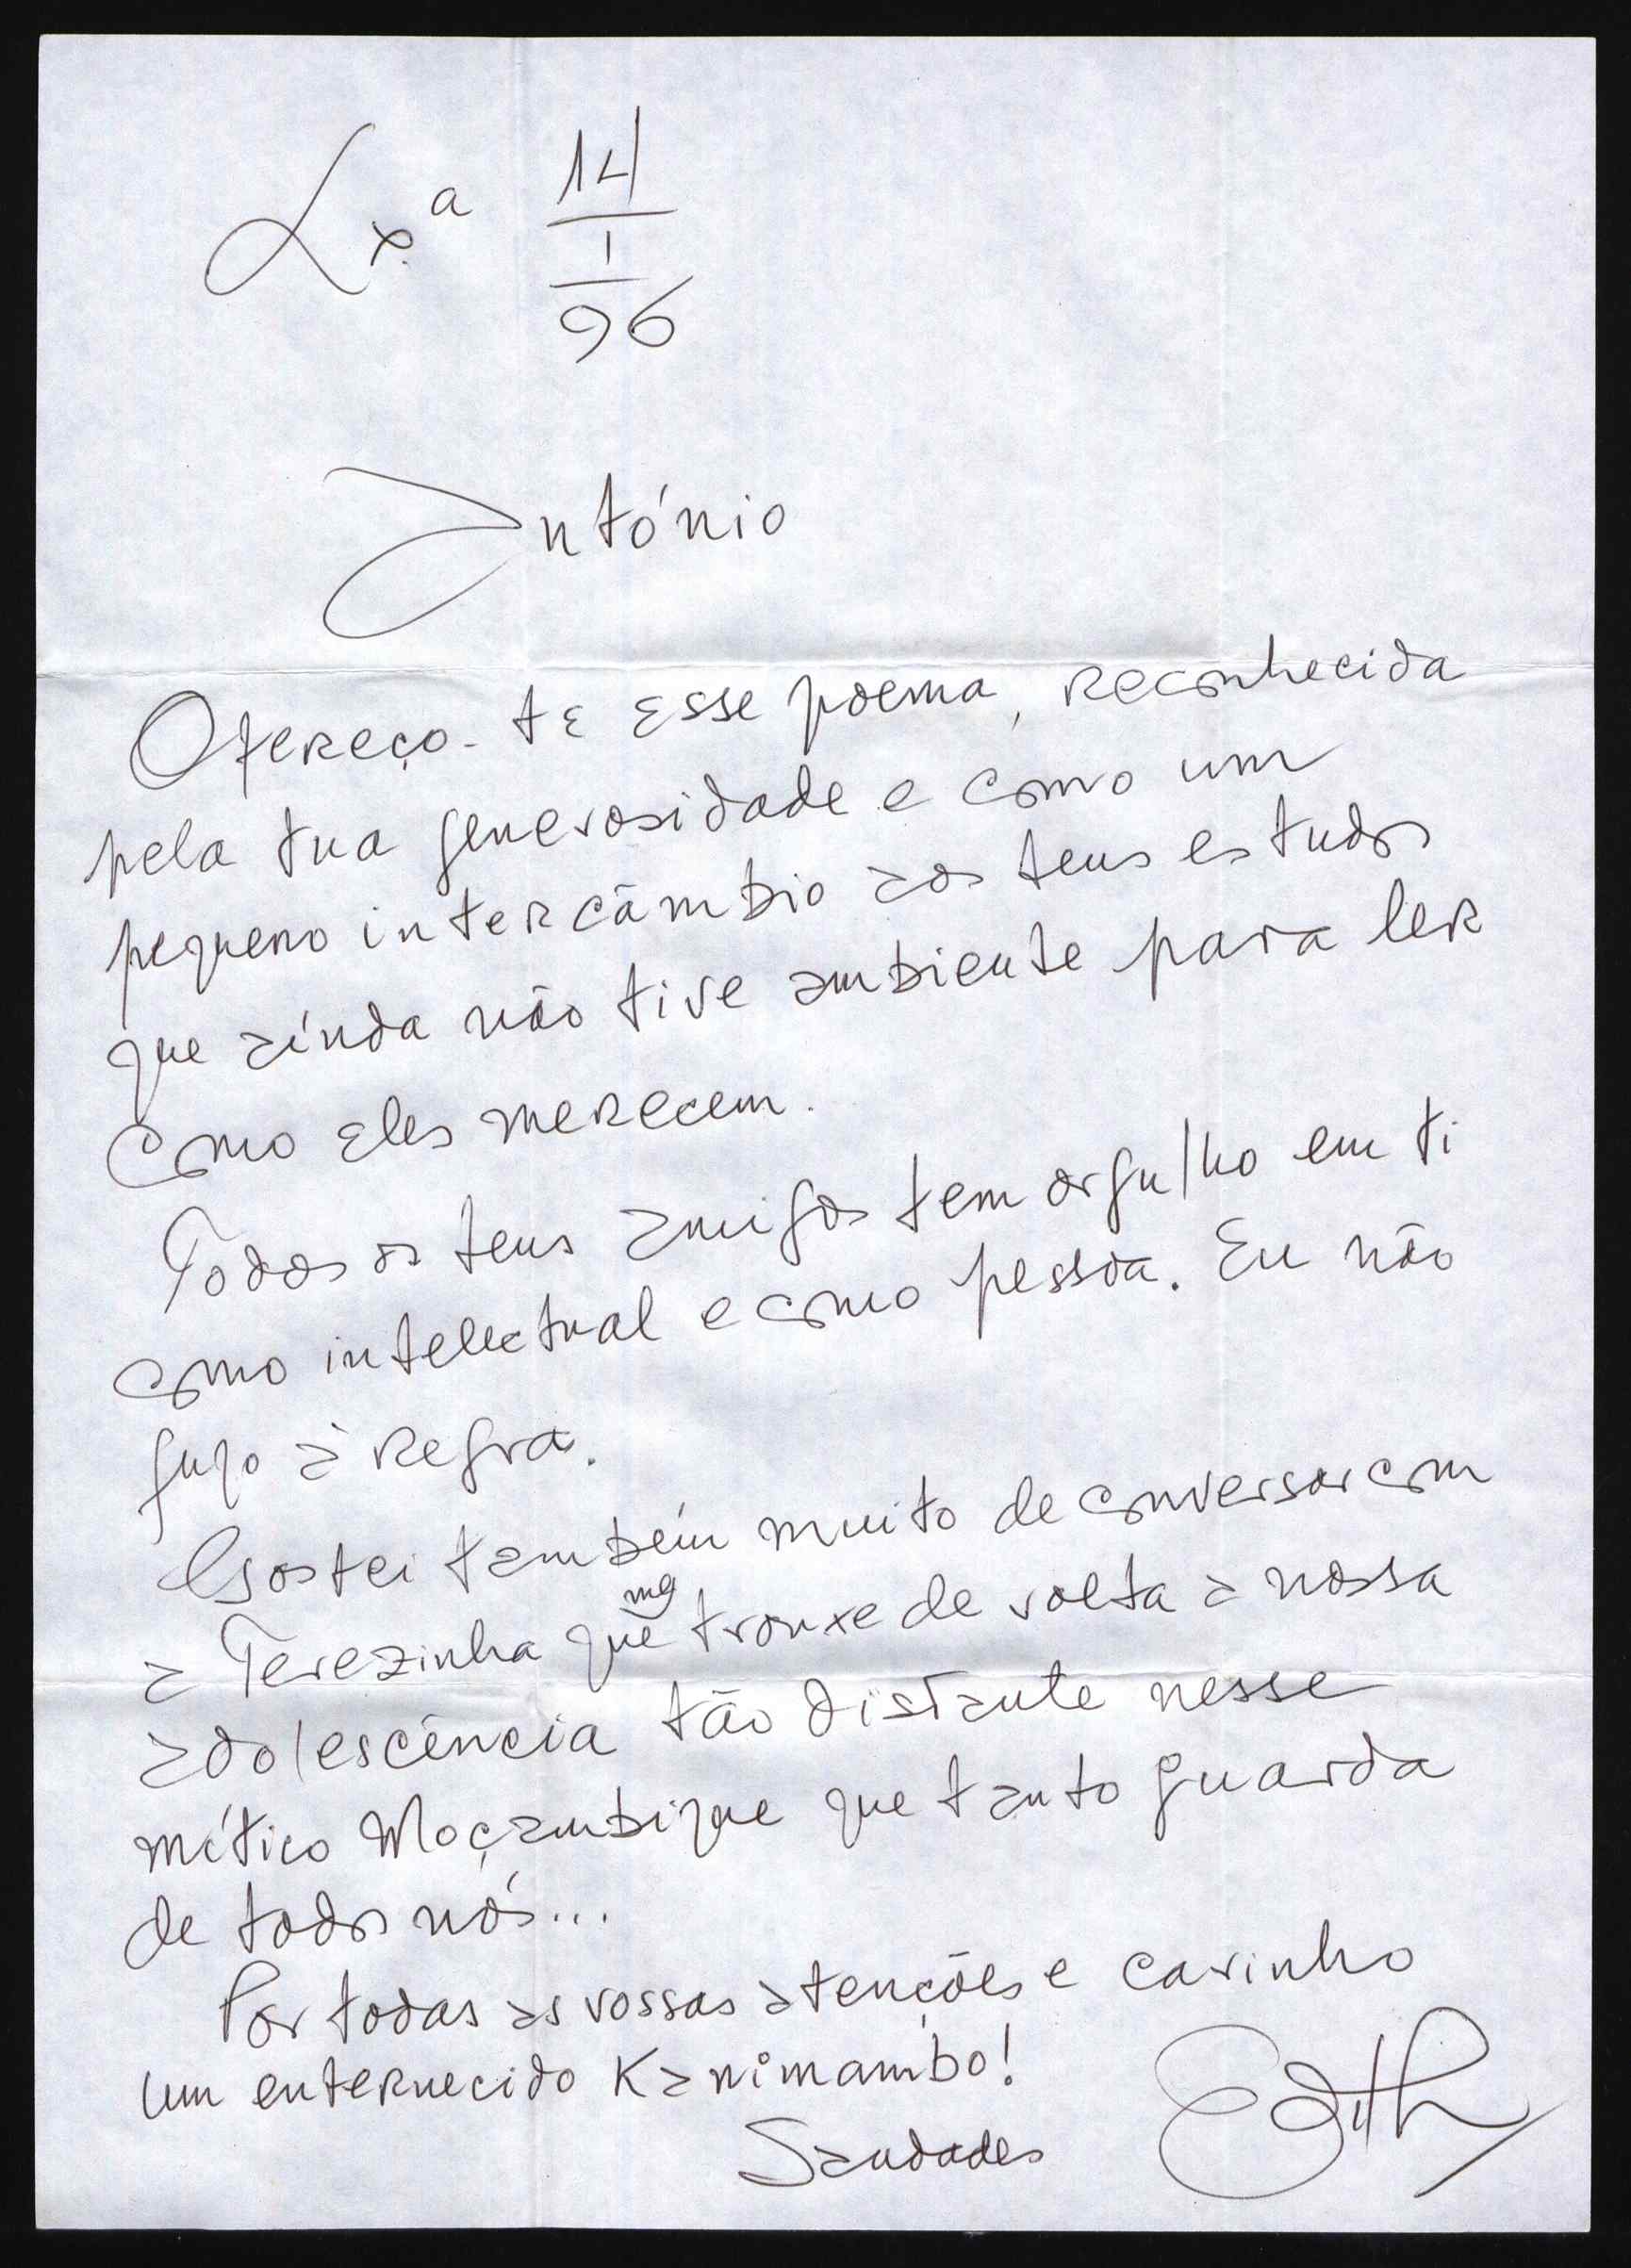 Lx.ª 14/1/96
António
Ofereço-te esse poema, reconhecida
pela tua generosidade e como um
pequeno intercâmbio aos teus estudos
que aínda não tive ambiente para ler
como eles merecem.
Todos os teus amigos tem orgulho em ti
como intelectual e como pessoa. Eu não
fujo à regra.
Gostei também muito de conversar com
a Terezinha que me trouxe de volta a nossa
adolescência tão distante nesse
mítico Moçambique que tanto guarda
de todos nós...
Por todas as vossas atenções e carinho
um enternecido Kanimambo!
Saudades Edith